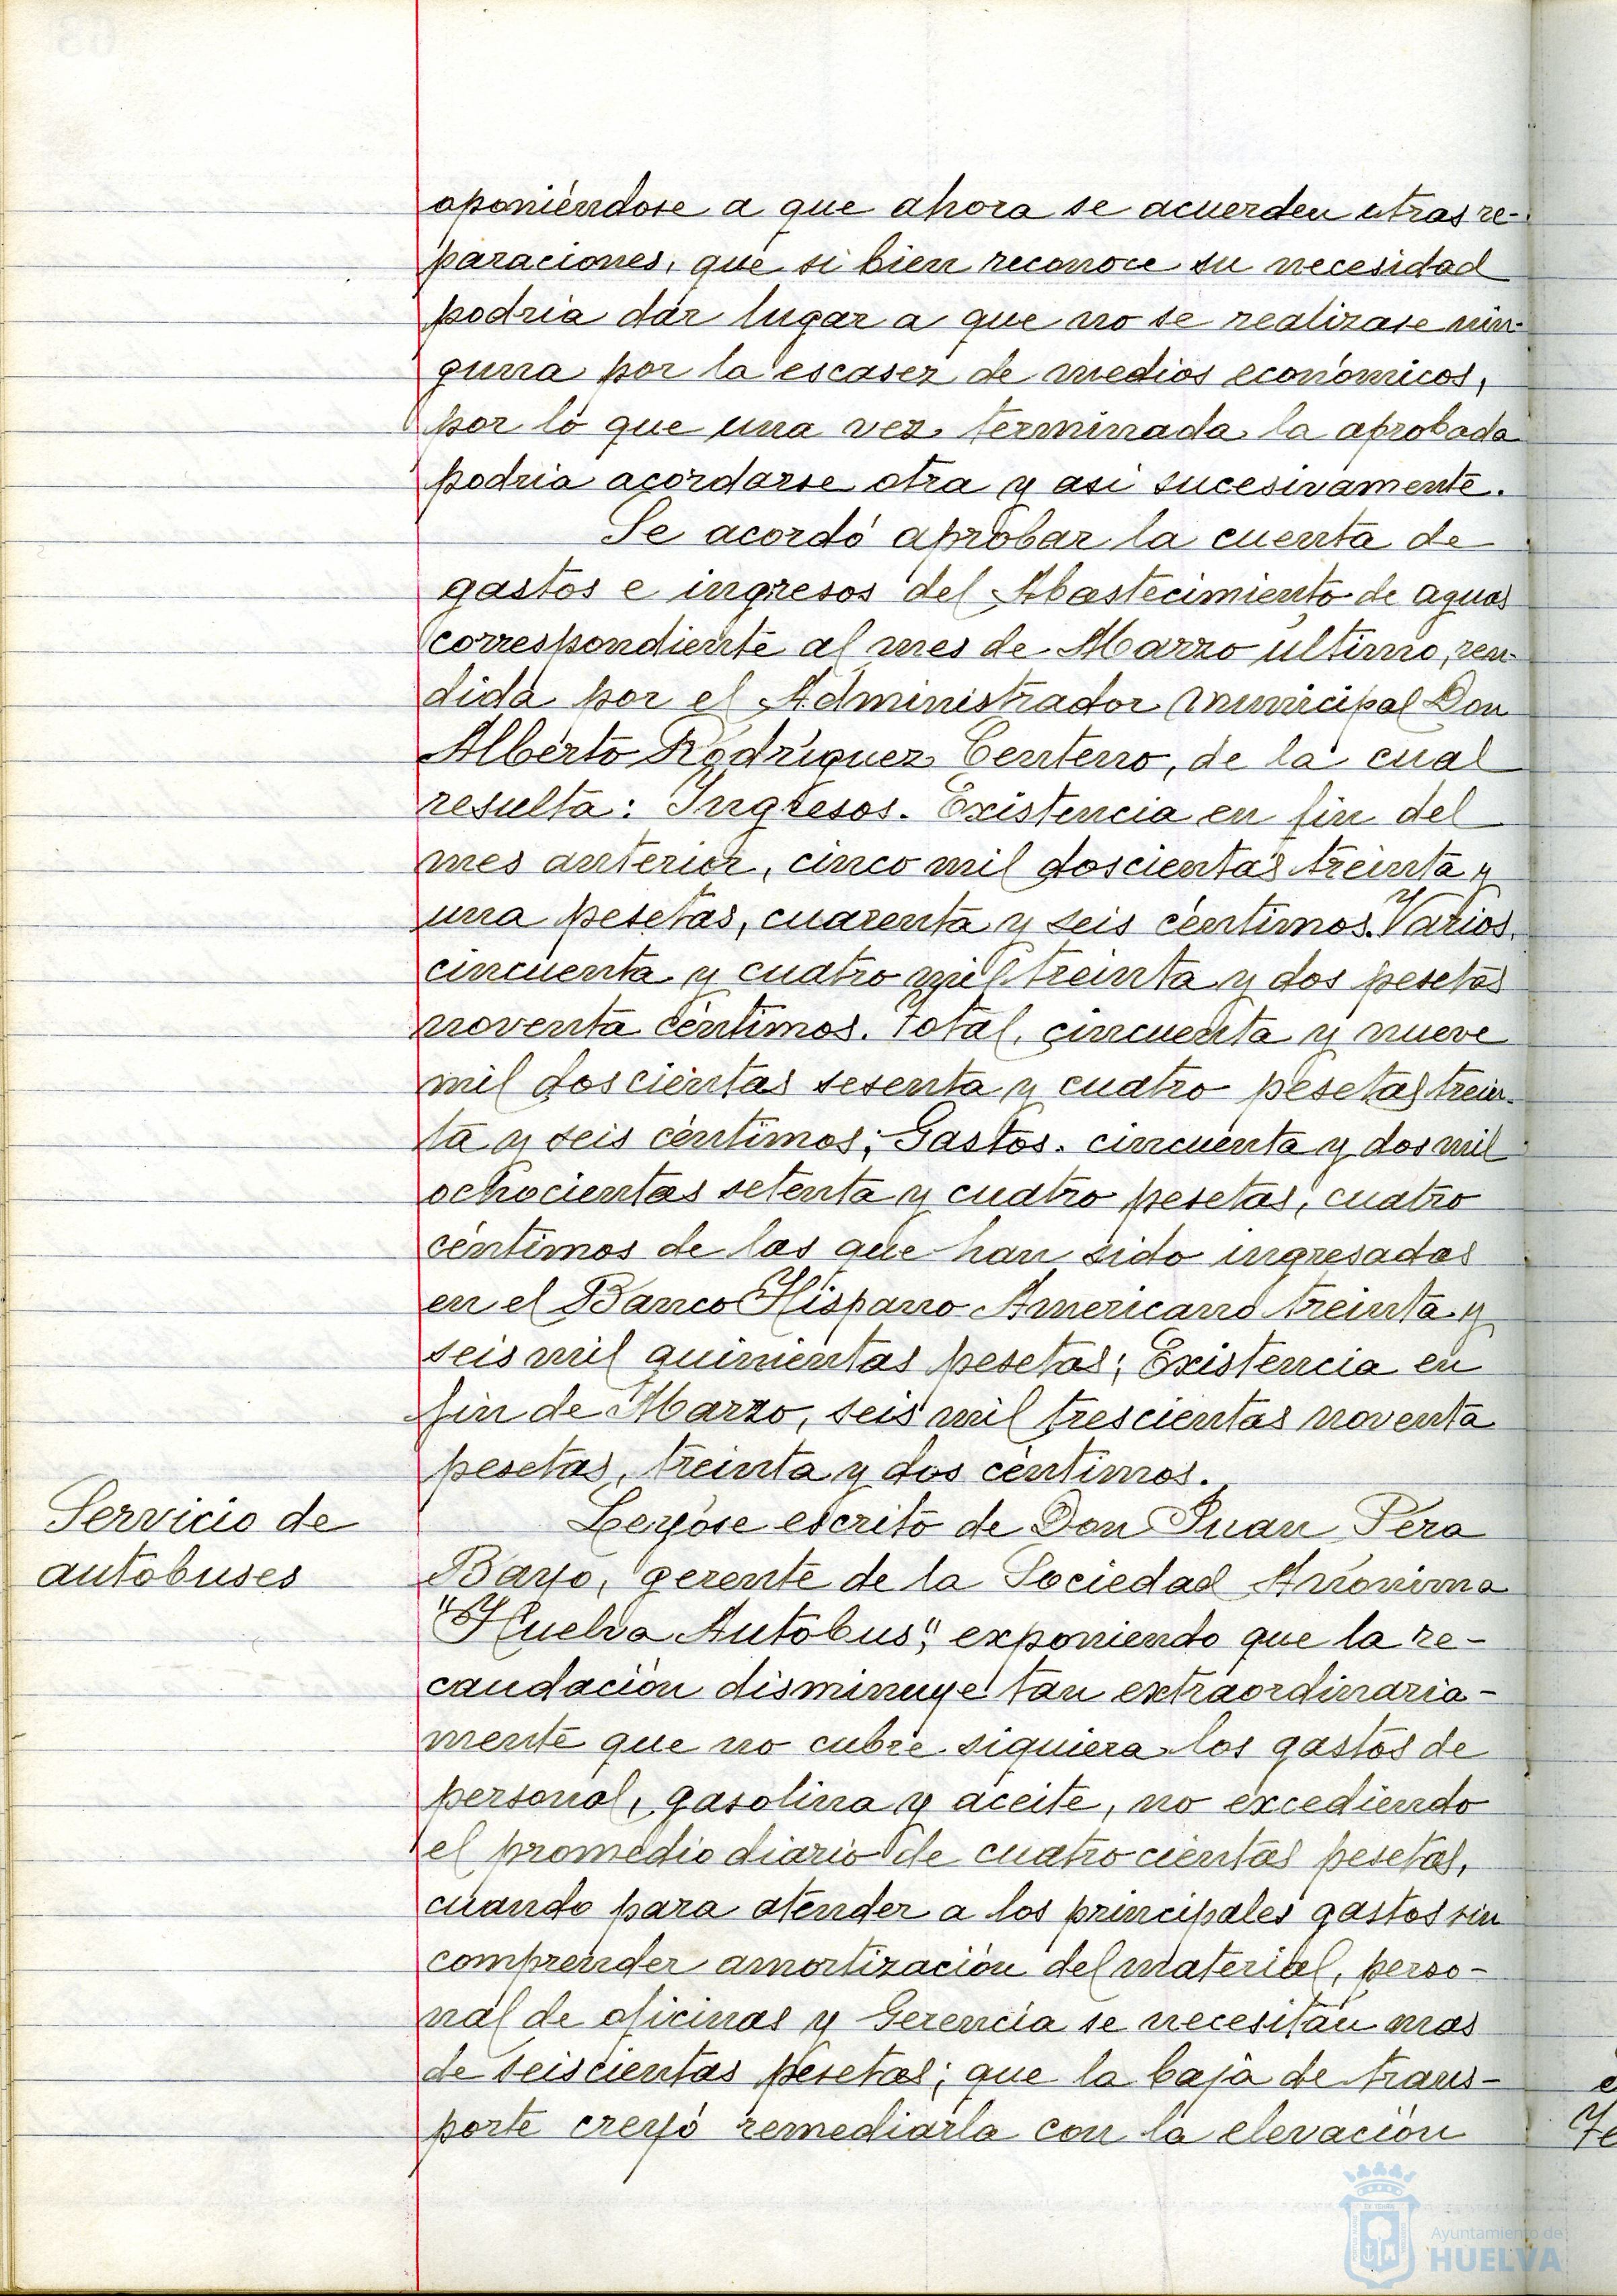 oponiéndose a que ahora se acuerden otras re-
paraciones, que si bien reconoce su necesidad
podria dar lugar a que no se realizase nin-
guna por la escasez de medios económicos,
por lo que una vez terminada la aprobada
podria acordarse otra y asi sucesivamente.
Se acordó aprobar la cuenta de
gastos e ingresos del Abastecimiento de aguas
correspondiente al mes de Marzo último, ren-
dida por el Administrador municipal Don
Alberto Rodríguez Centeno, de la cual
resulta: Ingresos. Existencia en fin del
mes anterior, cinco mil doscientas treinta y
una pesetas, cuarenta y seis céntimos. Varios,
cincuenta y cuatro mil treinta y dos pesetas
noventa céntimos. Total, cincuenta y nueve
mil doscientas sesenta y cuatro pesetas trein-
ta y seis céntimos; Gastos. cincuenta y dos mil
ochocientas setenta y cuatro pesetas, cuatro
céntimos de las que han sido ingresadas
en el Banco Hispano Americano treinta y
seis mil quinientas pesetas; Existencia en
fin de Marzo, seis mil trescientas noventa
pesetas, treinta y dos céntimos.
Servicio de
autobuses
Leyóse escrito de Don Juan Pera
Bayo, gerente de la Sociedad Anónima
"Huelva Autobus", exponiendo que la re-
caudación disminuye tan extraordinaria-
mente que no cubre siquiera los gastos de
personal, gasolina y aceite, no excediendo
el promedio diario de cuatrocientas pesetas,
cuando para atender a los principales gastos sin
comprender amortización del material, perso-
nal de oficinas y Gerencia se necesitan mas
de seiscientas pesetas; que la baja de trans-
porte creyó remediarla con la elevación
Ayuntamiento de
HUELVA